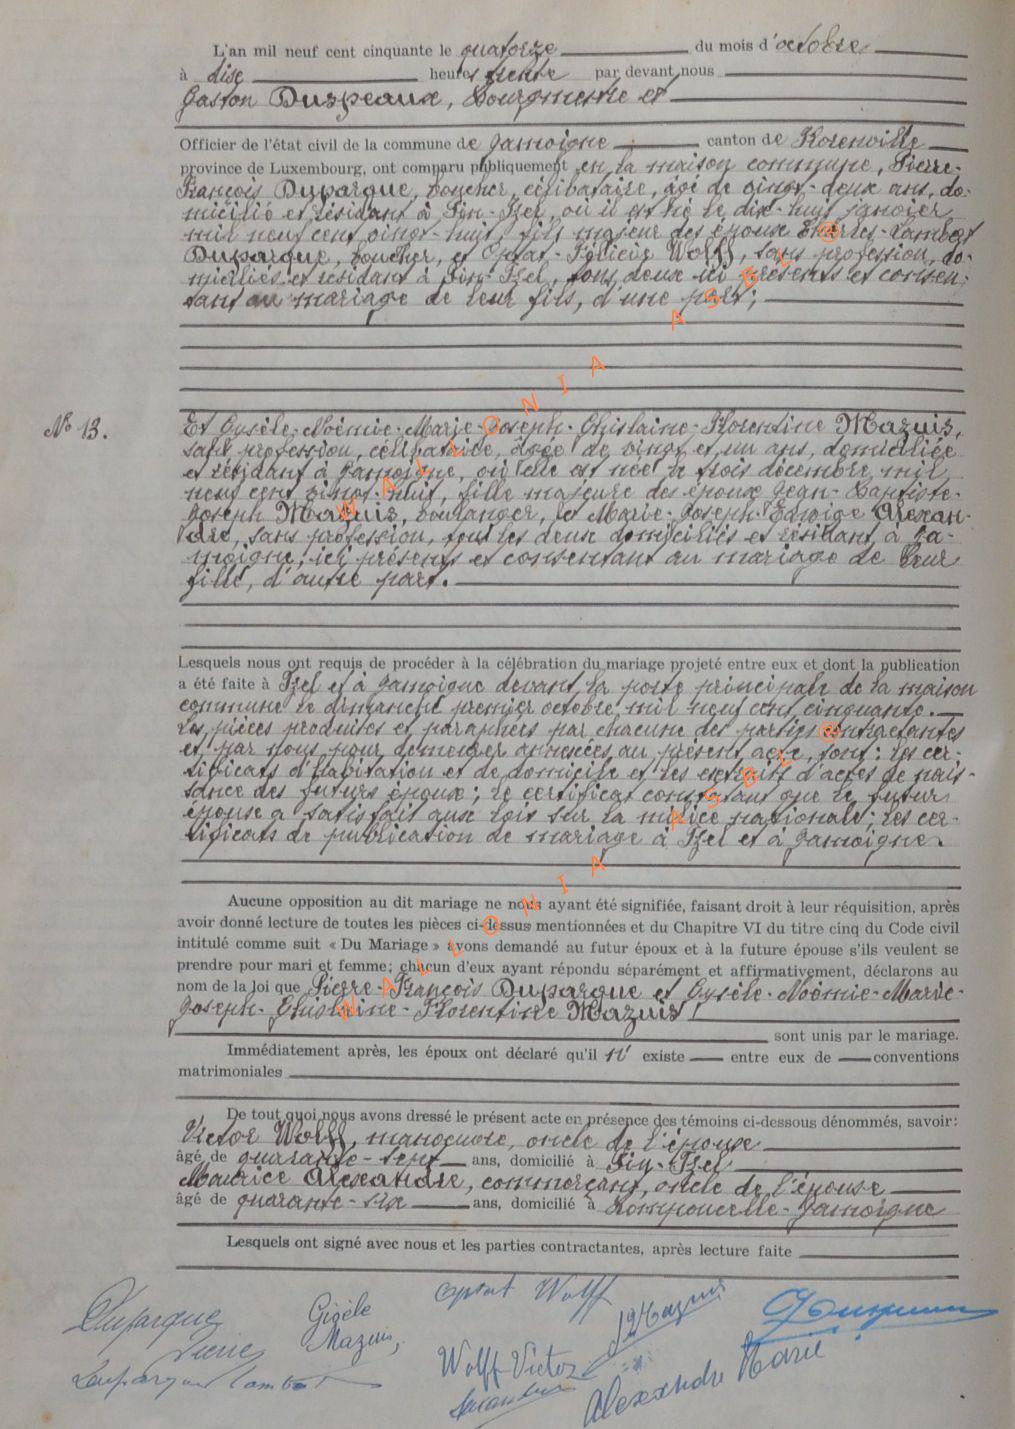 L'an mil neuf cent cinquante le quatorze du mois d'octobre
à dix heures trente par devant nous
Gaston Duspeaux, Bourgmestre et
Officier de l'état civil de la commune de Jamoigne canton de Florenville
province de Luxembourg, ont comparu publiquement en la maison commune, Pierre-
François Duparque, boucher, célibataire, âgé de vingt-deux ans, do-
micilié et résidant à Pin-Izel, où il est né le dix-huit janvier
mil neuf cent vingt-huit, fils majeur des époux Charles-Lambert
Duparque, boucher, et Optat-Félicie Wolff, sans profession, do-
miciliés et résidant à Pin-Izel, tous deux ici présents et consen-
tant au mariage de leur fils, d'une part;
N° 13.
Et Gysèle-Noëmie-Marie-Joseph-Ghislaine-Florentine Mazuis,
sans profession, célibataire, âgée de vingt et un ans, domiciliée
et résidant à Jamoigne, où elle est née le trois décembre mil
neuf cent vingt-huit, fille majeure des époux Jean-Baptiste-
Joseph Mazuis, boulanger, et Marie-Joseph-Edwige Alexan-
dre, sans profession, tous les deux domiciliés et résidant à Ja-
moigne, ici présents et consentant au mariage de leur
fille, d'autre part.
Lesquels nous ont requis de procéder à la célébration du mariage projeté entre eux et dont la publication
a été faite à Izel et à Jamoigne devant la porte principale de la maison
commune le dimanche premier octobre mil neuf cent cinquante.
Les pièces produites et paraphées par chacune des parties contractantes
et par nous pour demeurer annexées au présent acte, sont: les cer-
tificats d'habitation et de domicile et les extraits d'actes de nais-
sance des futurs époux; le certificat constatant que le futur
époux a satisfait aux lois sur la milice nationale; les cer-
tificats de publication de mariage à Izel et à Jamoigne.
Aucune opposition au dit mariage ne nous ayant été signifiée, faisant droit à leur réquisition, après
avoir donné lecture de toutes les pièces ci-dessus mentionnées et du Chapitre VI du titre cinq du Code civil
intitulé comme suit « Du Mariage » avons demandé au futur époux et à la future épouse s'ils veulent se
prendre pour mari et femme; chacun d'eux ayant répondu séparément et affirmativement, déclarons au
nom de la loi que Pierre-François Duparque et Gysèle-Noëmie-Marie-
Joseph-Ghislaine-Florentine Mazuis,
sont unis par le mariage.
Immédiatement après, les époux ont déclaré qu'il n' existe entre eux de conventions
matrimoniales
De tout quoi nous avons dressé le présent acte en présence des témoins ci-dessous dénommés, savoir:
Victor Wolff, manœuvre, oncle de l'épouse
âgé de quarante-sept ans, domicilié à Pin-Izel
Maurice Alexandre, commerçant, oncle de l'épouse
âgé de quarante-six ans, domicilié à Romponcelle-Jamoigne
Lesquels ont signé avec nous et les parties contractantes, après lecture faite
Duparque
Pierre
Gisèle
Mazuis
Optat Wolff
JB Mazuis
Duparque Lambert
Wolff Victor
Alexandre Marie
WALLONIA ASBL ®
WALLONIA ASBL ®